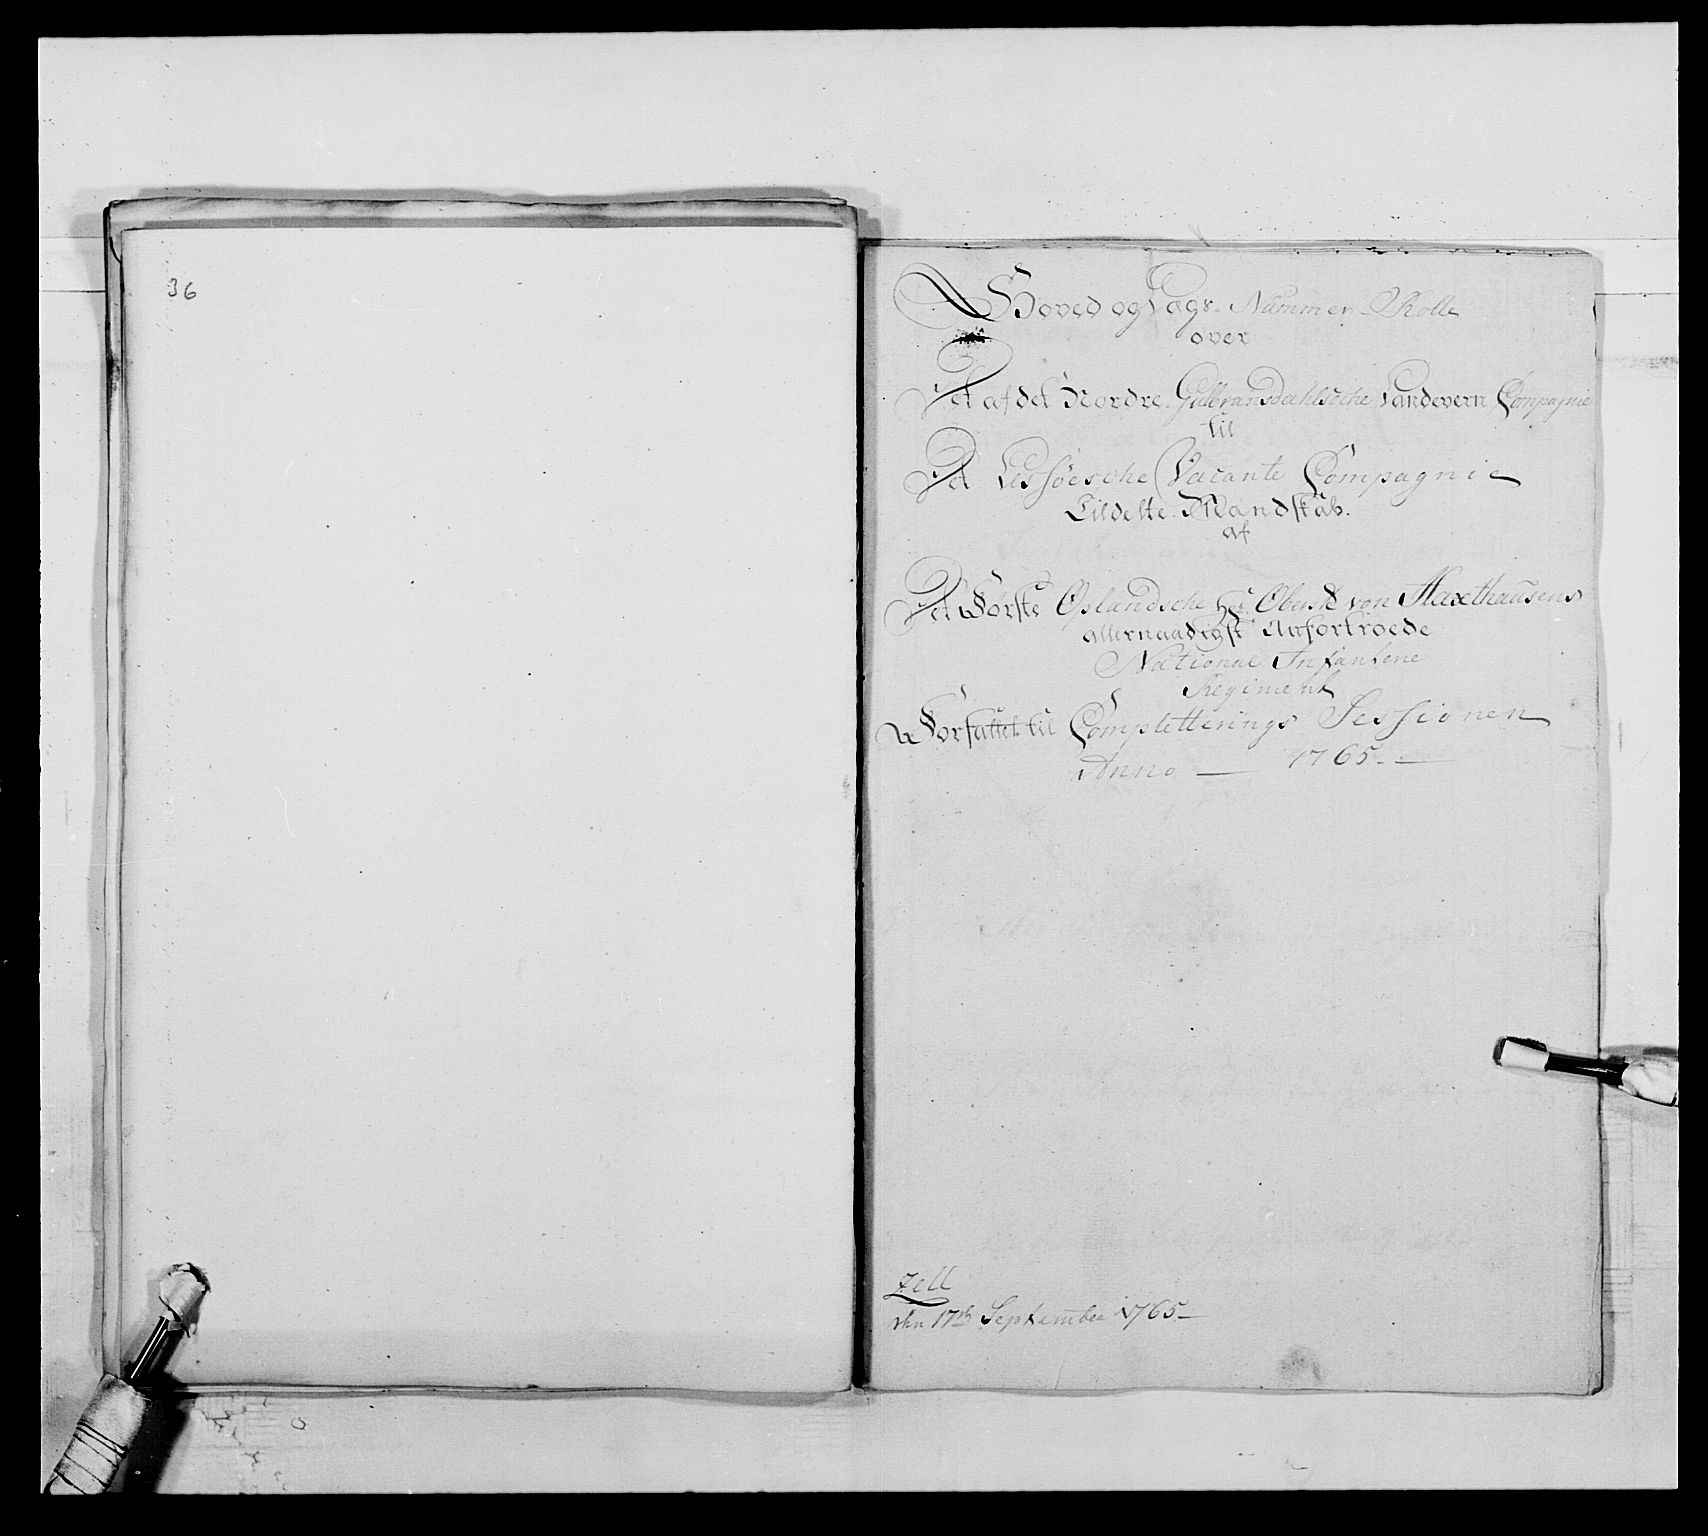 36
Hoved og Lægs-Nummer-Rolle
over
Det af det Nordre Gulbransdahlsche Landevern Compagnie
til
Det Lessøesche Vacante Compagnie
Tildelte Mandskab.
af
Det Første Oplandsche Hr Oberste von Haxthausens
allernaadigst Anfortroede
National Infanterie
Regiment
Forfattet til Completterings Sessionen
Anno — 1765. —
Zell
den 17de September 1765 —